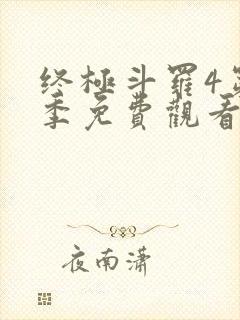 终極斗羅4第
季免費觀看
夜南潇